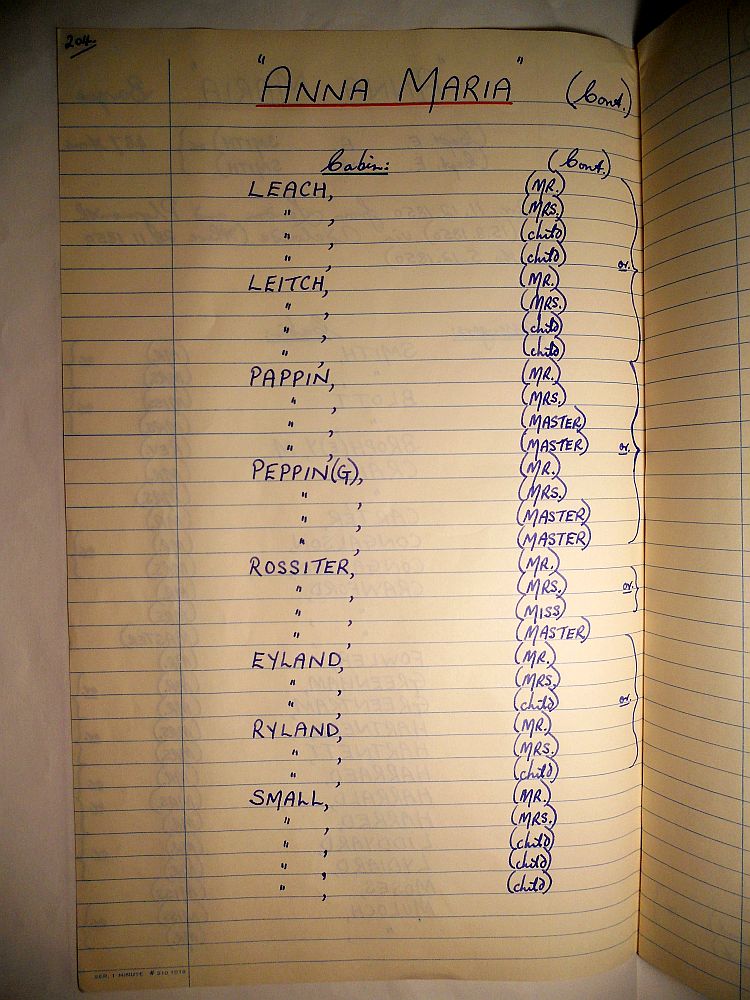 204.
"ANNA MARIA" (Cont.)
Cabin: (Cont.)
LEACH, (MR.)
" , (MRS.)
" , (child)
" , (child) or.
LEITCH, (MR.)
" , (MRS.)
" , (child)
" , (child)
PAPPIN, (MR.)
" , (MRS.)
" , (MASTER)
" , (MASTER) or.
PEPPIN(G), (MR.)
" , (MRS.)
" , (MASTER)
" , (MASTER)
ROSSITER, (MR.)
" , (MRS.) or.
" , (MISS)
" , (MASTER)
EYLAND, (MR.)
" , (MRS.)
" , (child) or.
RYLAND, (MR.)
" , (MRS.)
" , (child)
SMALL, (MR.)
" , (MRS.)
" , (child)
" , (child)
" , (child)